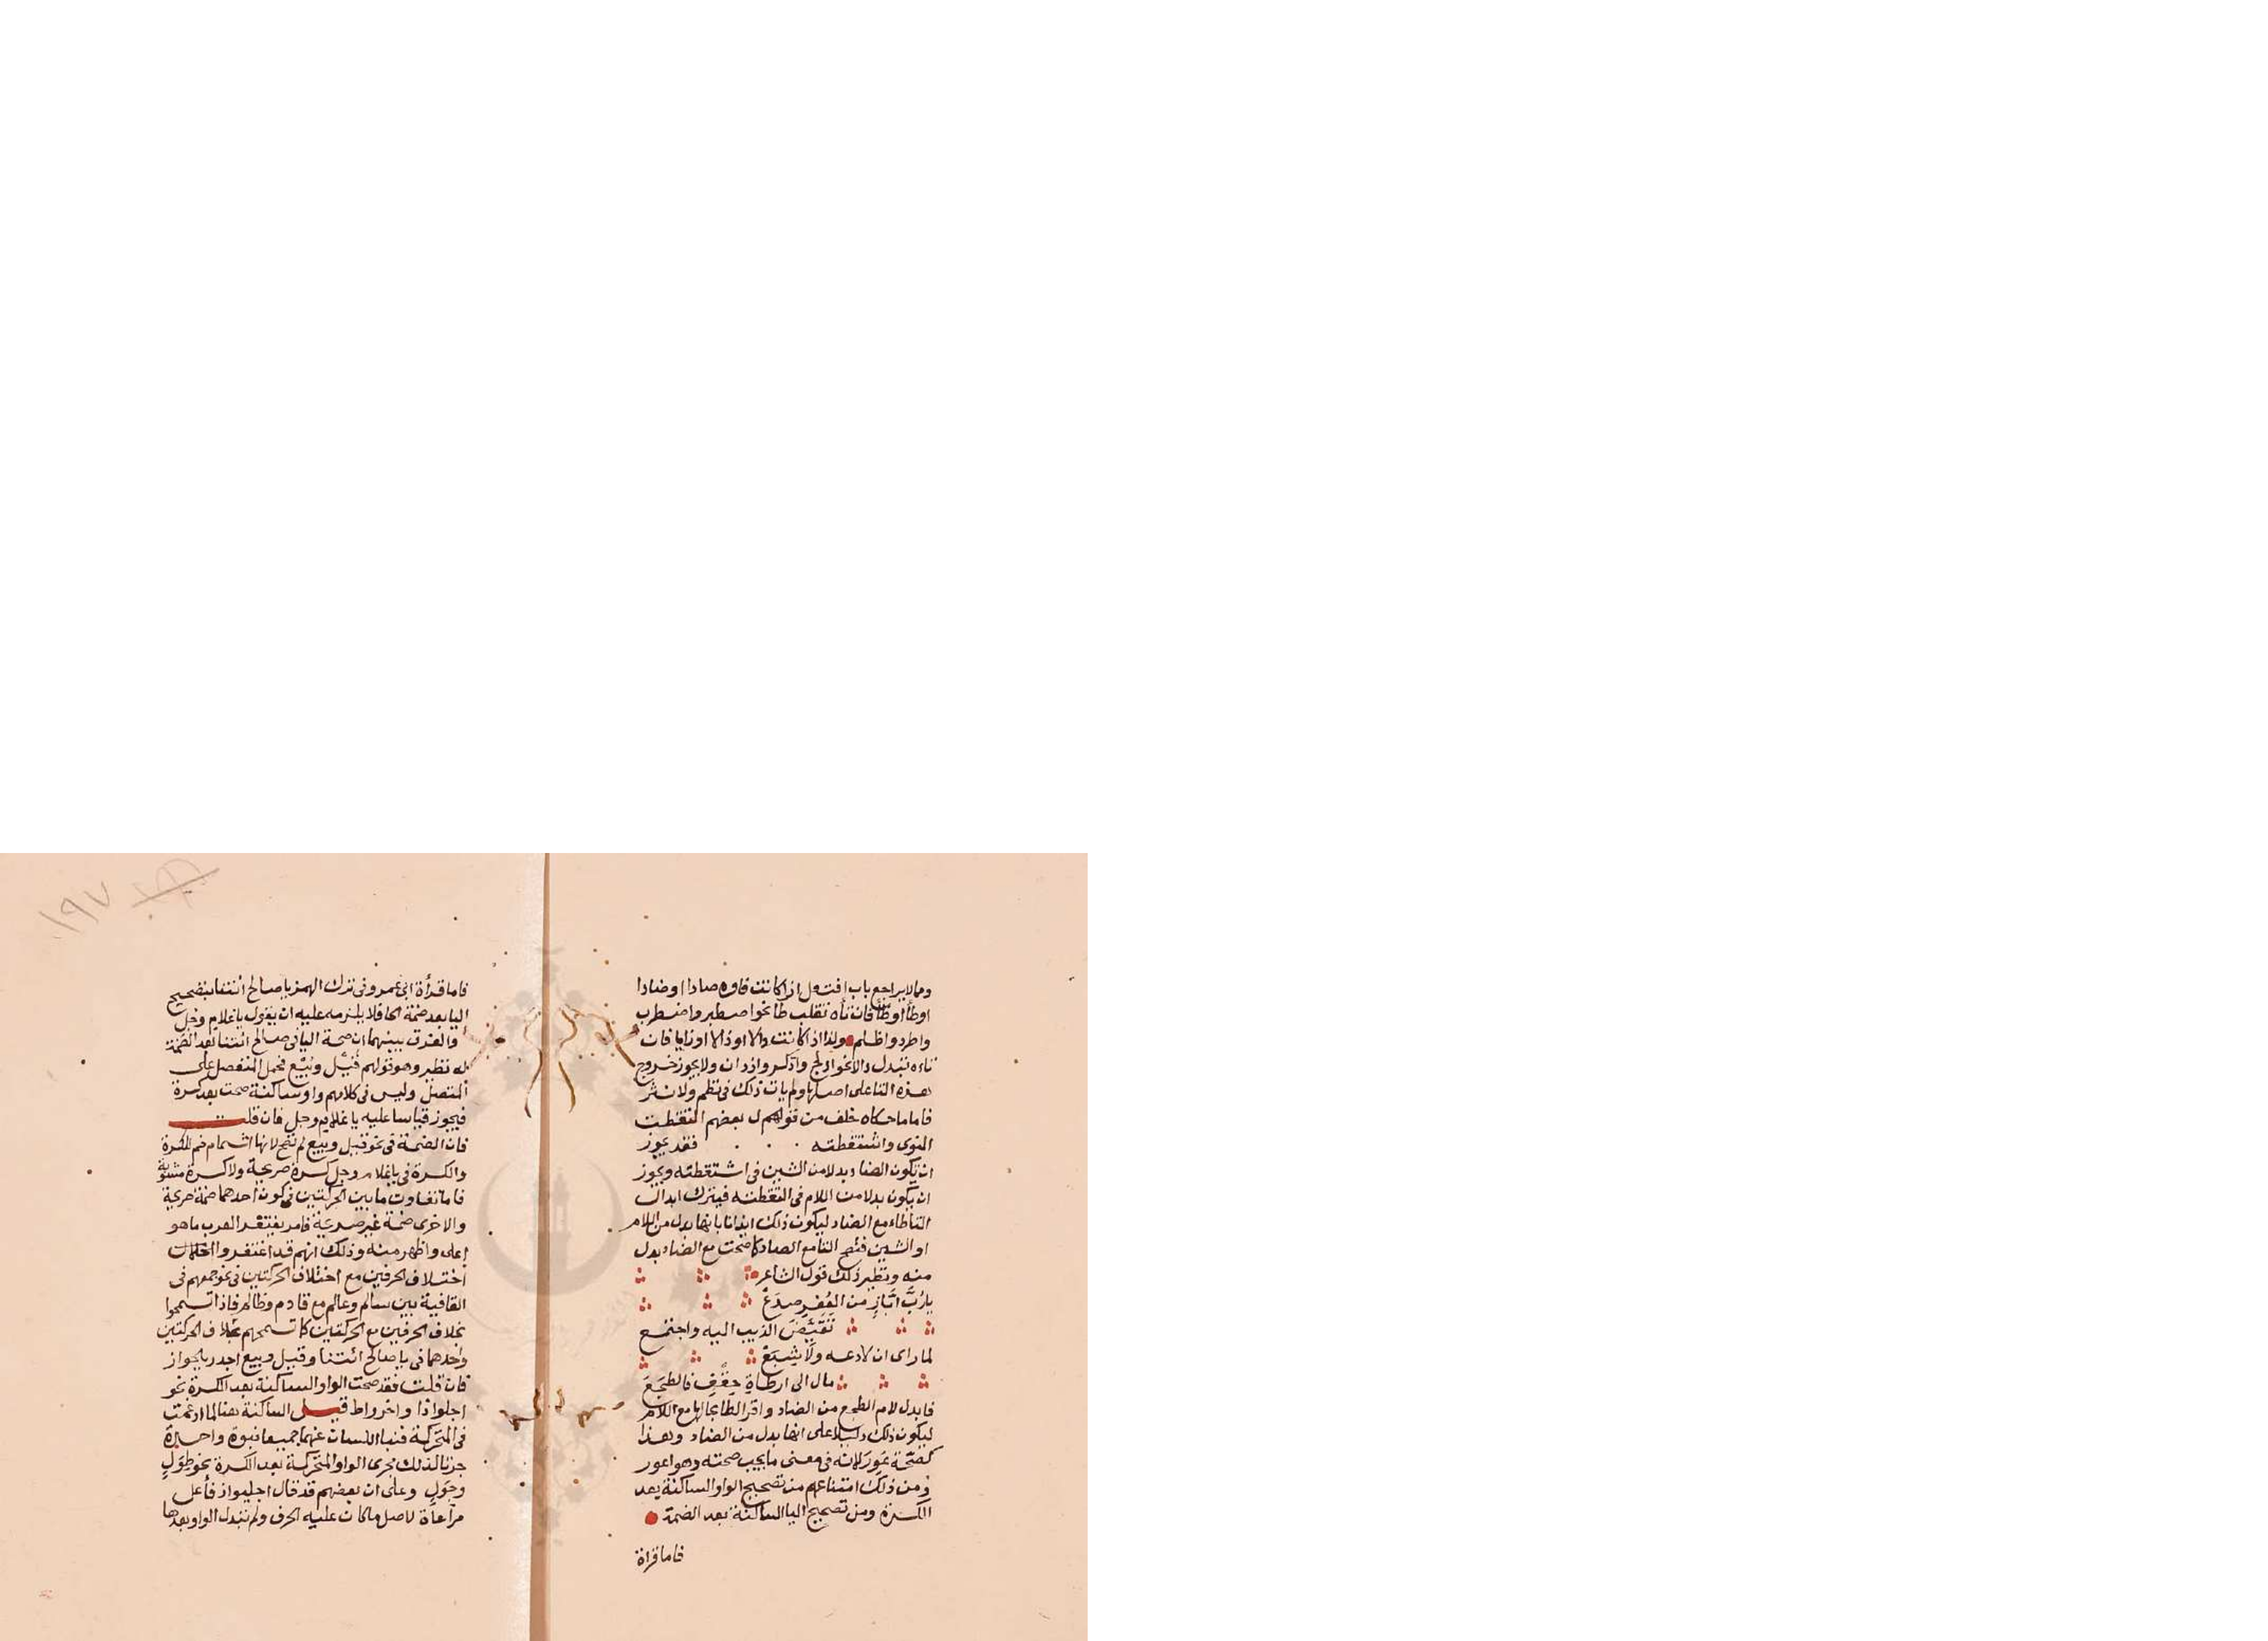 ومما لا يراجع باب افتعل اذا كانت فاوه صادا او ضادا
او طاا او ظاا فان تاه تقلب طا نحو اصطبر واضطرب
واطرد واظلم ولذا اذا كانت دالا او ذالا او زايا فان
تاه تبدل دالا نحو ادلج واذكر وازدان ولا يجوز خروج
هذه التا على اصلها ولم يات ذلك فى نظم ولا نثر
فاما ما حكاه خلف من قولهم ل بعضهم التقطت
النوى واشتقطته فقد يجوز
ان تكون الضاد بدلا من الشين فى اشتقطته ويجوز
ان يكون بدلا من اللام فى التقطته فيترك ابدال
التا طاء مع الضاد ليكون ذلك ايذانا بانها بدل من اللام
او الشين فتصح التا مع الضاد كما صحت مع الضاد بدل
منه ونظير ذلك قول الشاعر
يا رُبَّ ابَّازٍ من العُفْر صدَعْ
تَقَبَّضَ الذيب اليه واجتمع
لما راى ان لا دعه ولا شِبَعْ
مال الى ارطاةِ حِقْفٍ فالطجَعَ
فابدل لام الطجع من الضاد واقر الطا بحالها مع اللام
ليكون ذلك دليلا على انها بدل من الضاد وهذا
كصحّة عَوِرَ لانه فى معنى ما يجب صحته وهو اعور
ومن ذلك امتناعهم من تصحيح الواو الساكنة بعد
الكسرة ومن تصحيح اليا الساكنة بعد الضمة
فاما قراة
١٩٧
فاما قرأة ابى عمرو فى ترك الهمز يا صالح ائتنا بتصحيح
اليا بعد ضمة الحا فلا يلزمه عليه ان يقول يا غلام وجل
والفرق بينهما ان صحة اليا فى صالح ائتنا بعد الضمة
له نظير وهو قولهم قُيْل وبُيْع فحمل المنفصل على
المتصل وليس فى كلامهم واو ساكنة صحت بعد كسرة
فيجوز قياسا عليه يا غلام وجل فان قلت
فان الضمة فى نحو قيل وبيع لم تصح لانها اشمام ضم للكسرة
والكسرة فى يا غلام وجل كسرة صريحة ولا كسرة مشوبة
فاما تفاوت ما بين الحركتين فى كون احدهما ضمة صريحة
والاخرى ضمة غير صريحة فامر يغتفر العرب ما هو
اعلى واظهر منه وذلك انهم قد اغتفروا اختلاف
اختلاف الحرفين مع اختلاف الحركتين فى نحو جمعهم فى
القافية بين سالم وعالم مع قادم وظالم فاذا تسمحوا
بخلاف الحرفين مع الحركتين كان تسمحهم بخلاف الحركتين
وحدهما فى يا صالح ائتنا وقيل وبيع اجدر بالجواز
فان قلت فقد صحت الواو الساكنة بعد الكسرة نحو
اجلواذا واخرواط قيل الساكنة هنا لما ادغمت
فى المتحركة فنبا اللسان عنهما جميعا نبوة واحدة
جرتا لذلك مجرى الواو المتحركة بعد الكسرة نحو طِوَلٍ
وحِوَلٍ وعلى ان بعضهم قد قال اجليواذ فأعل
مرآعاة لاصل ما كان عليه الحرف ولم تبدل الواو بعدها